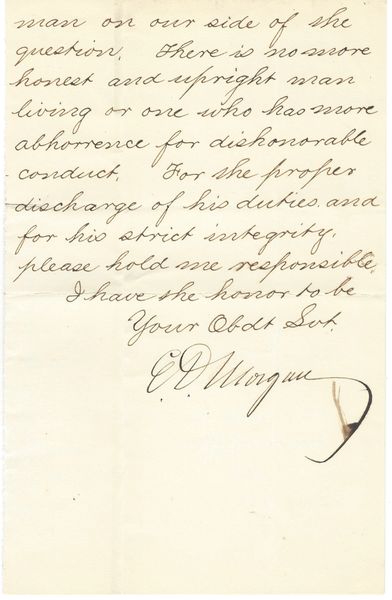 man on our side of the
question. There is no more
honest and upright man
living or one who has more
abhorrence for dishonorable
conduct. For the proper
discharge of his duties and
for his strict integrity,
please hold me responsible.
I have the honor to be
Your Obdt Svt.
E D Morgan